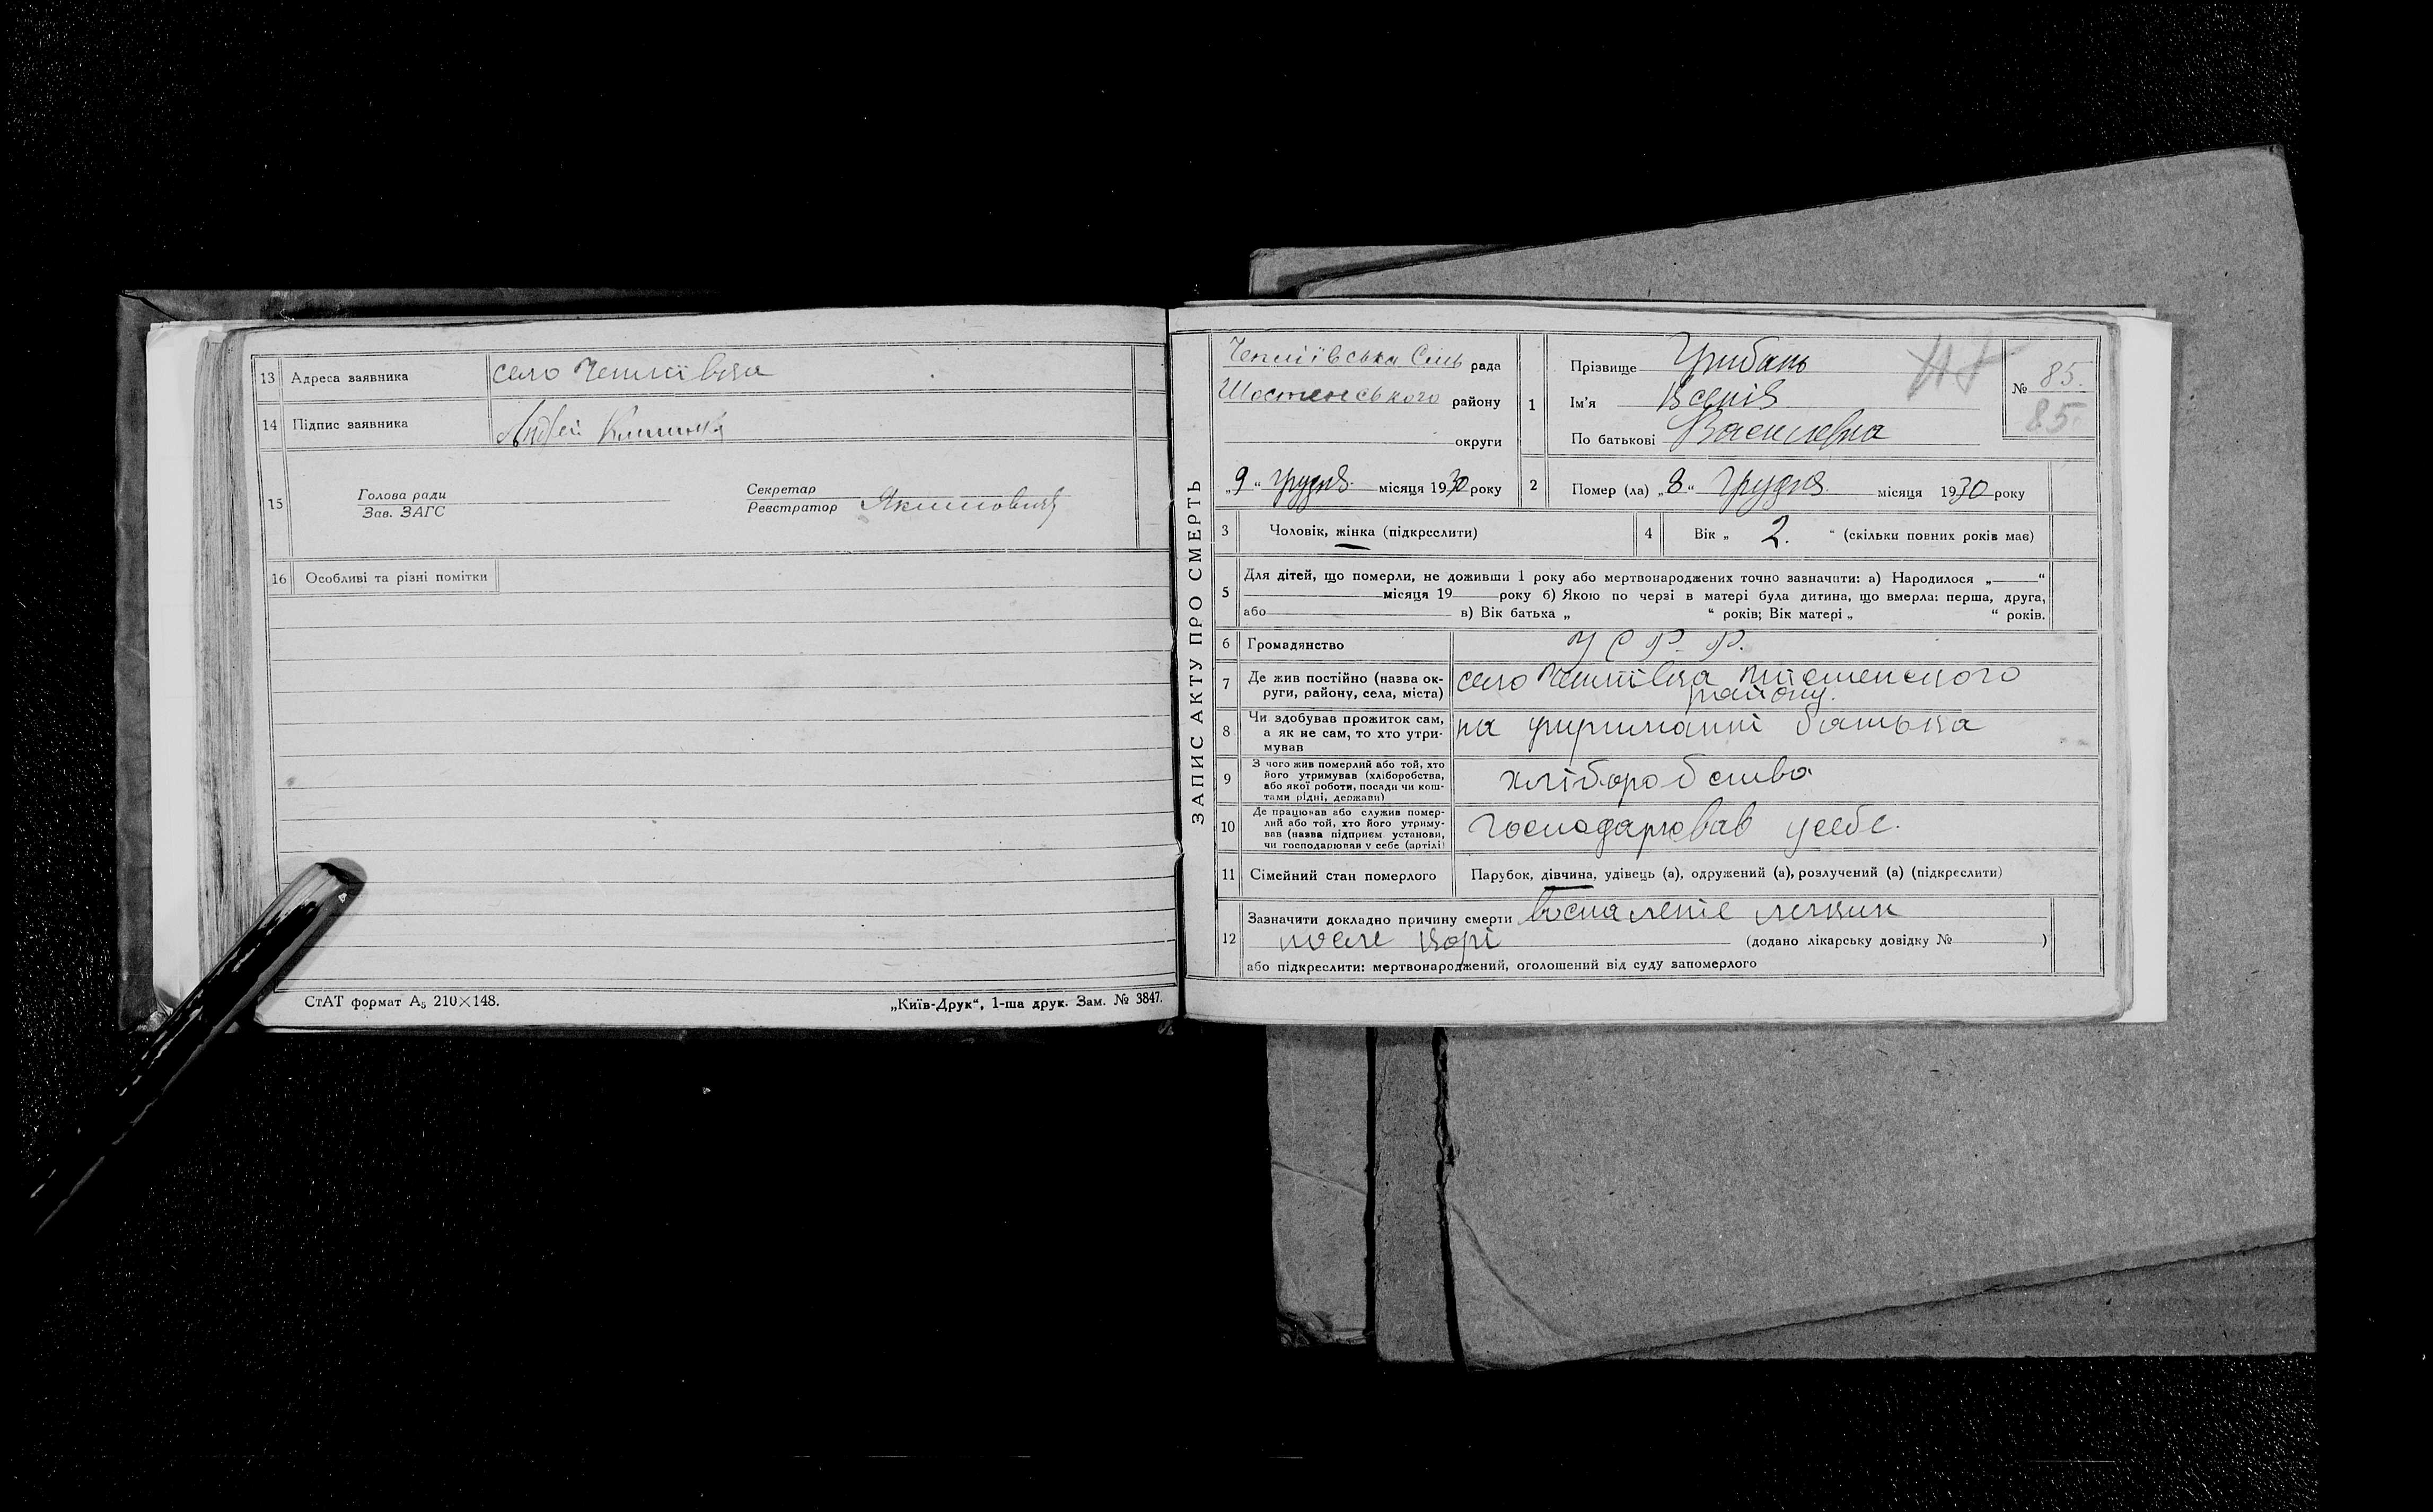 13 Адреса заявника село
14 Підпис заявника
15 Голова ради
Зав. ЗАГС
Секретар
Реєстратор Якимович
16 Особливі та різні помітки
СтАТ формат А₅ 210×148.
„Київ-Друк“, 1-ша друк. Зам. № 3847.
ЗАПИС АКТУ ПРО СМЕРТЬ
рада
Шостенського району
округи
„9“ грудня місяця 1930 року
1 Прізвище Грибань
Ім'я Ксенія
По батькові Василевна
№ 85.
85.
2 Помер (ла) „8“ Грудня місяця 1930 року
3 Чоловік, жінка (підкреслити)
4 Вік „ 2. “ (скільки повних років має)
5 Для дітей, що померли, не доживши 1 року або мертвонароджених точно зазначити: а) Народилося „ “
місяця 19 року б) Якою по черзі в матері була дитина, що вмерла: перша, друга,
або в) Вік батька „ “ років; Вік матері „ “ років.
6 Громадянство У С Р. Р.
7 Де жив постійно (назва ок-
руги, району, села, міста) село
району.
8 Чи здобував прожиток сам,
а як не сам, то хто утри-
мував
на утриманні батька
9 З чого жив померлий або той, хто
його утримував (хліборобства,
або якої роботи, посади чи кош-
тами рідні, держави)
хліборобства
10 Де працював або служив помер-
лий або той, хто його утриму-
вав (назва підприєм установи,
чи господарював у себе (артілі)
господарював усебе.
11 Сімейний стан померлого Парубок, дівчина, удівець (а), одружений (а), розлучений (а) (підкреслити)
12 Зазначити докладно причину смерти воспаленіе легких
после корі (додано лікарську довідку № )
або підкреслити: мертвонароджений, оголошений від суду запомерлого